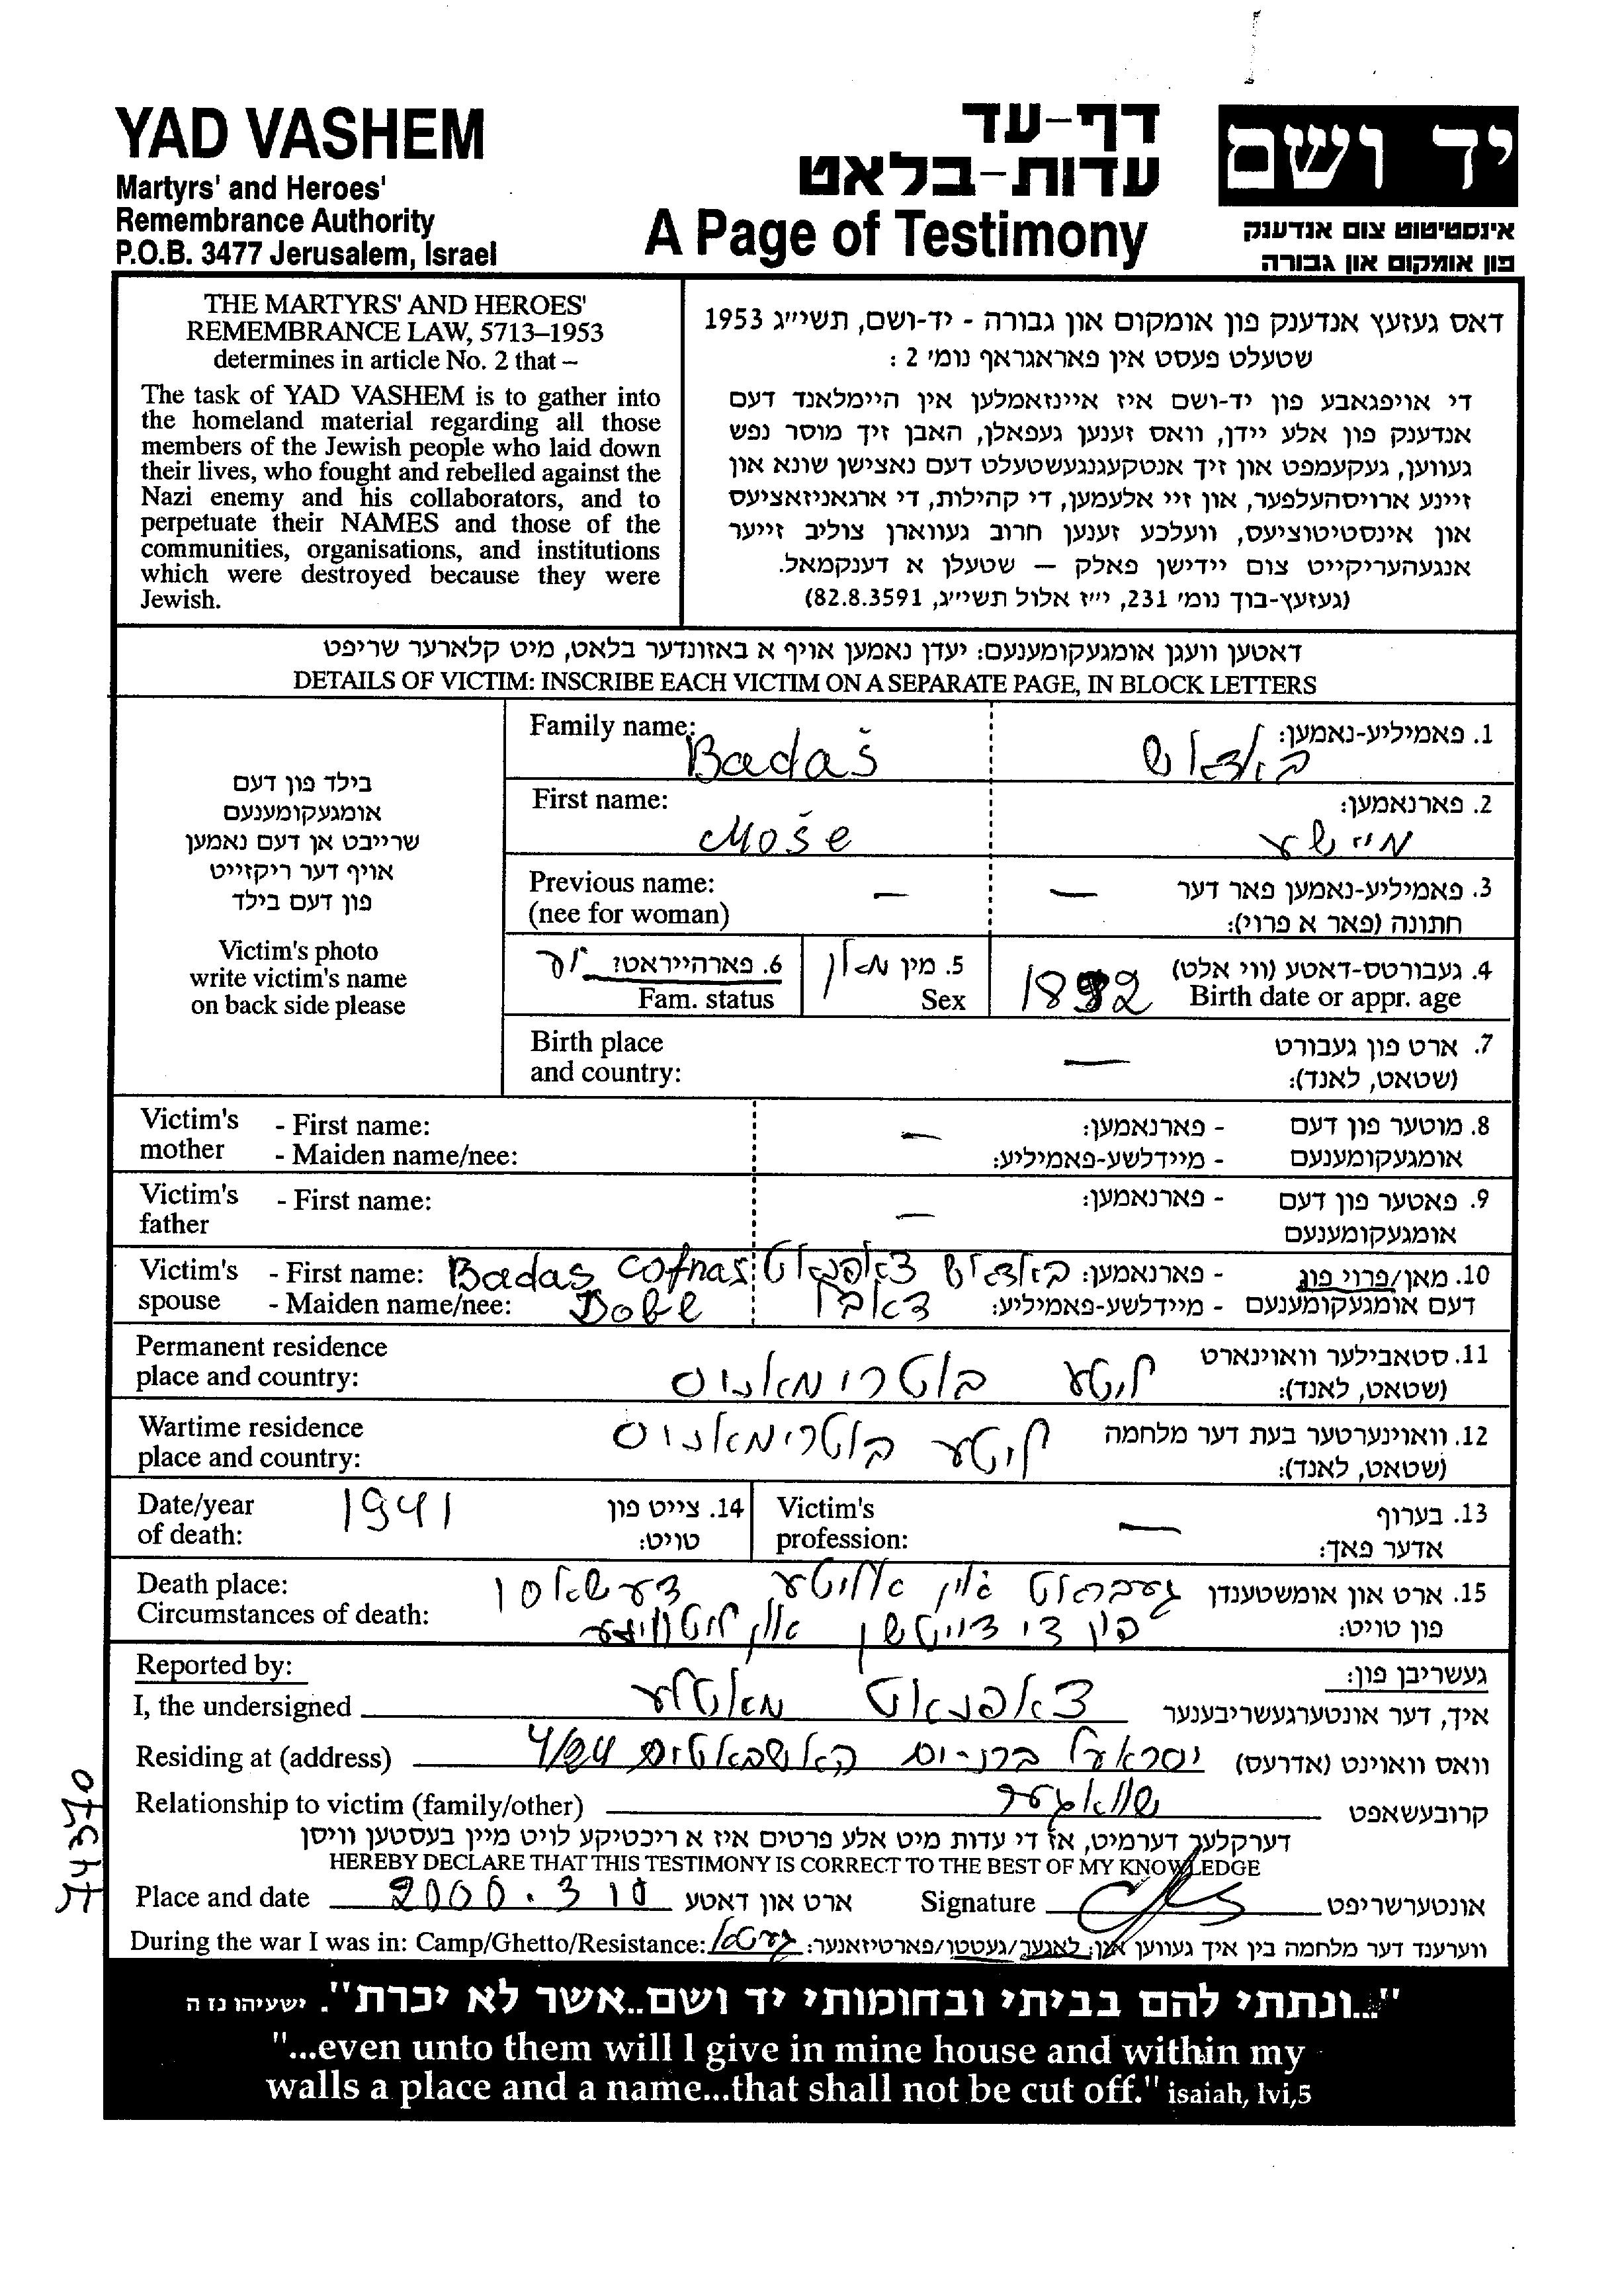 YAD VASHEM
Martyrs' and Heroes'
Remembrance Authority
P.O.B. 3477 Jerusalem, Israel
דף-עד
עדות-בלאט
A Page of Testimony
יד ושם
אינסטיטוט צום אנדענק
פון אומקום און גבורה
THE MARTYRS' AND HEROES'
REMEMBRANCE LAW, 5713–1953
determines in article No. 2 that –
The task of YAD VASHEM is to gather into
the homeland material regarding all those
members of the Jewish people who laid down
their lives, who fought and rebelled against the
Nazi enemy and his collaborators, and to
perpetuate their NAMES and those of the
communities, organisations, and institutions
which were destroyed because they were
Jewish.
דאס געזעץ אנדענק פון אומקום און גבורה - יד-ושם, תשי״ג 1953
שטעלט פעסט אין פאראגראף נומ׳ 2 :
די אויפגאבע פון יד-ושם איז איינזאמלען אין היימלאנד דעם
אנדענק פון אלע יידן, וואס זענען געפאלן, האבן זיך מוסר נפש
געווען, געקעמפט און זיך אנטקעגנגעשטעלט דעם נאצישן שונא און
זיינע ארויסהעלפער, און זיי אלעמען, די קהילות, די ארגאניזאציעס
און אינסטיטוציעס, וועלכע זענען חרוב געווארן צוליב זייער
אנגעהעריקייט צום יידישן פאלק — שטעלן א דענקמאל.
(געזעץ-בוך נומ׳ 231, י״ז אלול תשי״ג, 82.8.3591)
דאטען וועגן אומגעקומענעם: יעדן נאמען אויף א באזונדער בלאט, מיט קלארער שריפט
DETAILS OF VICTIM: INSCRIBE EACH VICTIM ON A SEPARATE PAGE, IN BLOCK LETTERS
בילד פון דעם
אומגעקומענעם
שרייבט אן דעם נאמען
אויף דער ריקזייט
פון דעם בילד
Victim's photo
write victim's name
on back side please
Family name: Badaš באדאש 1. פאמיליע-נאמען:
First name: Moše מיישע 2. פארנאמען:
Previous name: — — 3. פאמיליע-נאמען פאר דער
(nee for woman) חתונה (פאר א פרוי):
4. געבורטס-דאטע (ווי אלט)
Birth date or appr. age
5. מין
Sex
6. פארהייראט? יע
Fam. status
Birth place — 7. ארט פון געבורט
and country: (שטאט, לאנד):
Victim's - First name: — - פארנאמען: 8. מוטער פון דעם
mother - Maiden name/nee: - מיידלשע-פאמיליע: אומגעקומענעם
Victim's - First name: — - פארנאמען: 9. פאטער פון דעם
father אומגעקומענעם
Victim's - First name: Badas Cofnas צאפנאס באדאש - פארנאמען: 10. מאן/פרוי פון
spouse - Maiden name/nee: Dobe - מיידלשע-פאמיליע: דעם אומגעקומענעם
Permanent residence ליטע בוטרימאנוס 11. סטאבילער וואוינארט
place and country: (שטאט, לאנד):
Wartime residence ליטע בוטרימאנוס 12. וואוינערטער בעת דער מלחמה
place and country: (שטאט, לאנד):
Date/year 1941 14. צייט פון
of death: טויט:
Victim's — 13. בערוף
profession: אדער פאך:
Death place: געבראט אין אליטע דערשאסן 15. ארט און אומשטענדן
Circumstances of death: פון די דויטשן און פון טויט:
Reported by: געשריבן פון:
I, the undersigned צאפנאס מאטלע איך, דער אונטערגעשריבענער
Residing at (address) ישראל בת-ים 4/24 וואס וואוינט (אדרעס)
Relationship to victim (family/other) שוואגער קרובעשאפט
דערקלער דערמיט, אז די עדות מיט אלע פרטים איז א ריכטיקע לויט מיין בעסטען וויסן
HEREBY DECLARE THAT THIS TESTIMONY IS CORRECT TO THE BEST OF MY KNOWLEDGE
Place and date 2000.3 10 ארט און דאטע Signature אונטערשריפט
During the war I was in: Camp/Ghetto/Resistance: געטא ווערענד דער מלחמה בין איך געווען אין: לאגער/געטטו/פארטיזאנער:
"...ונתתי להם בביתי ובחומותי יד ושם..אשר לא יכרת". ישעיהו נז ה
"...even unto them will l give in mine house and within my
walls a place and a name...that shall not be cut off." isaiah, lvi,5